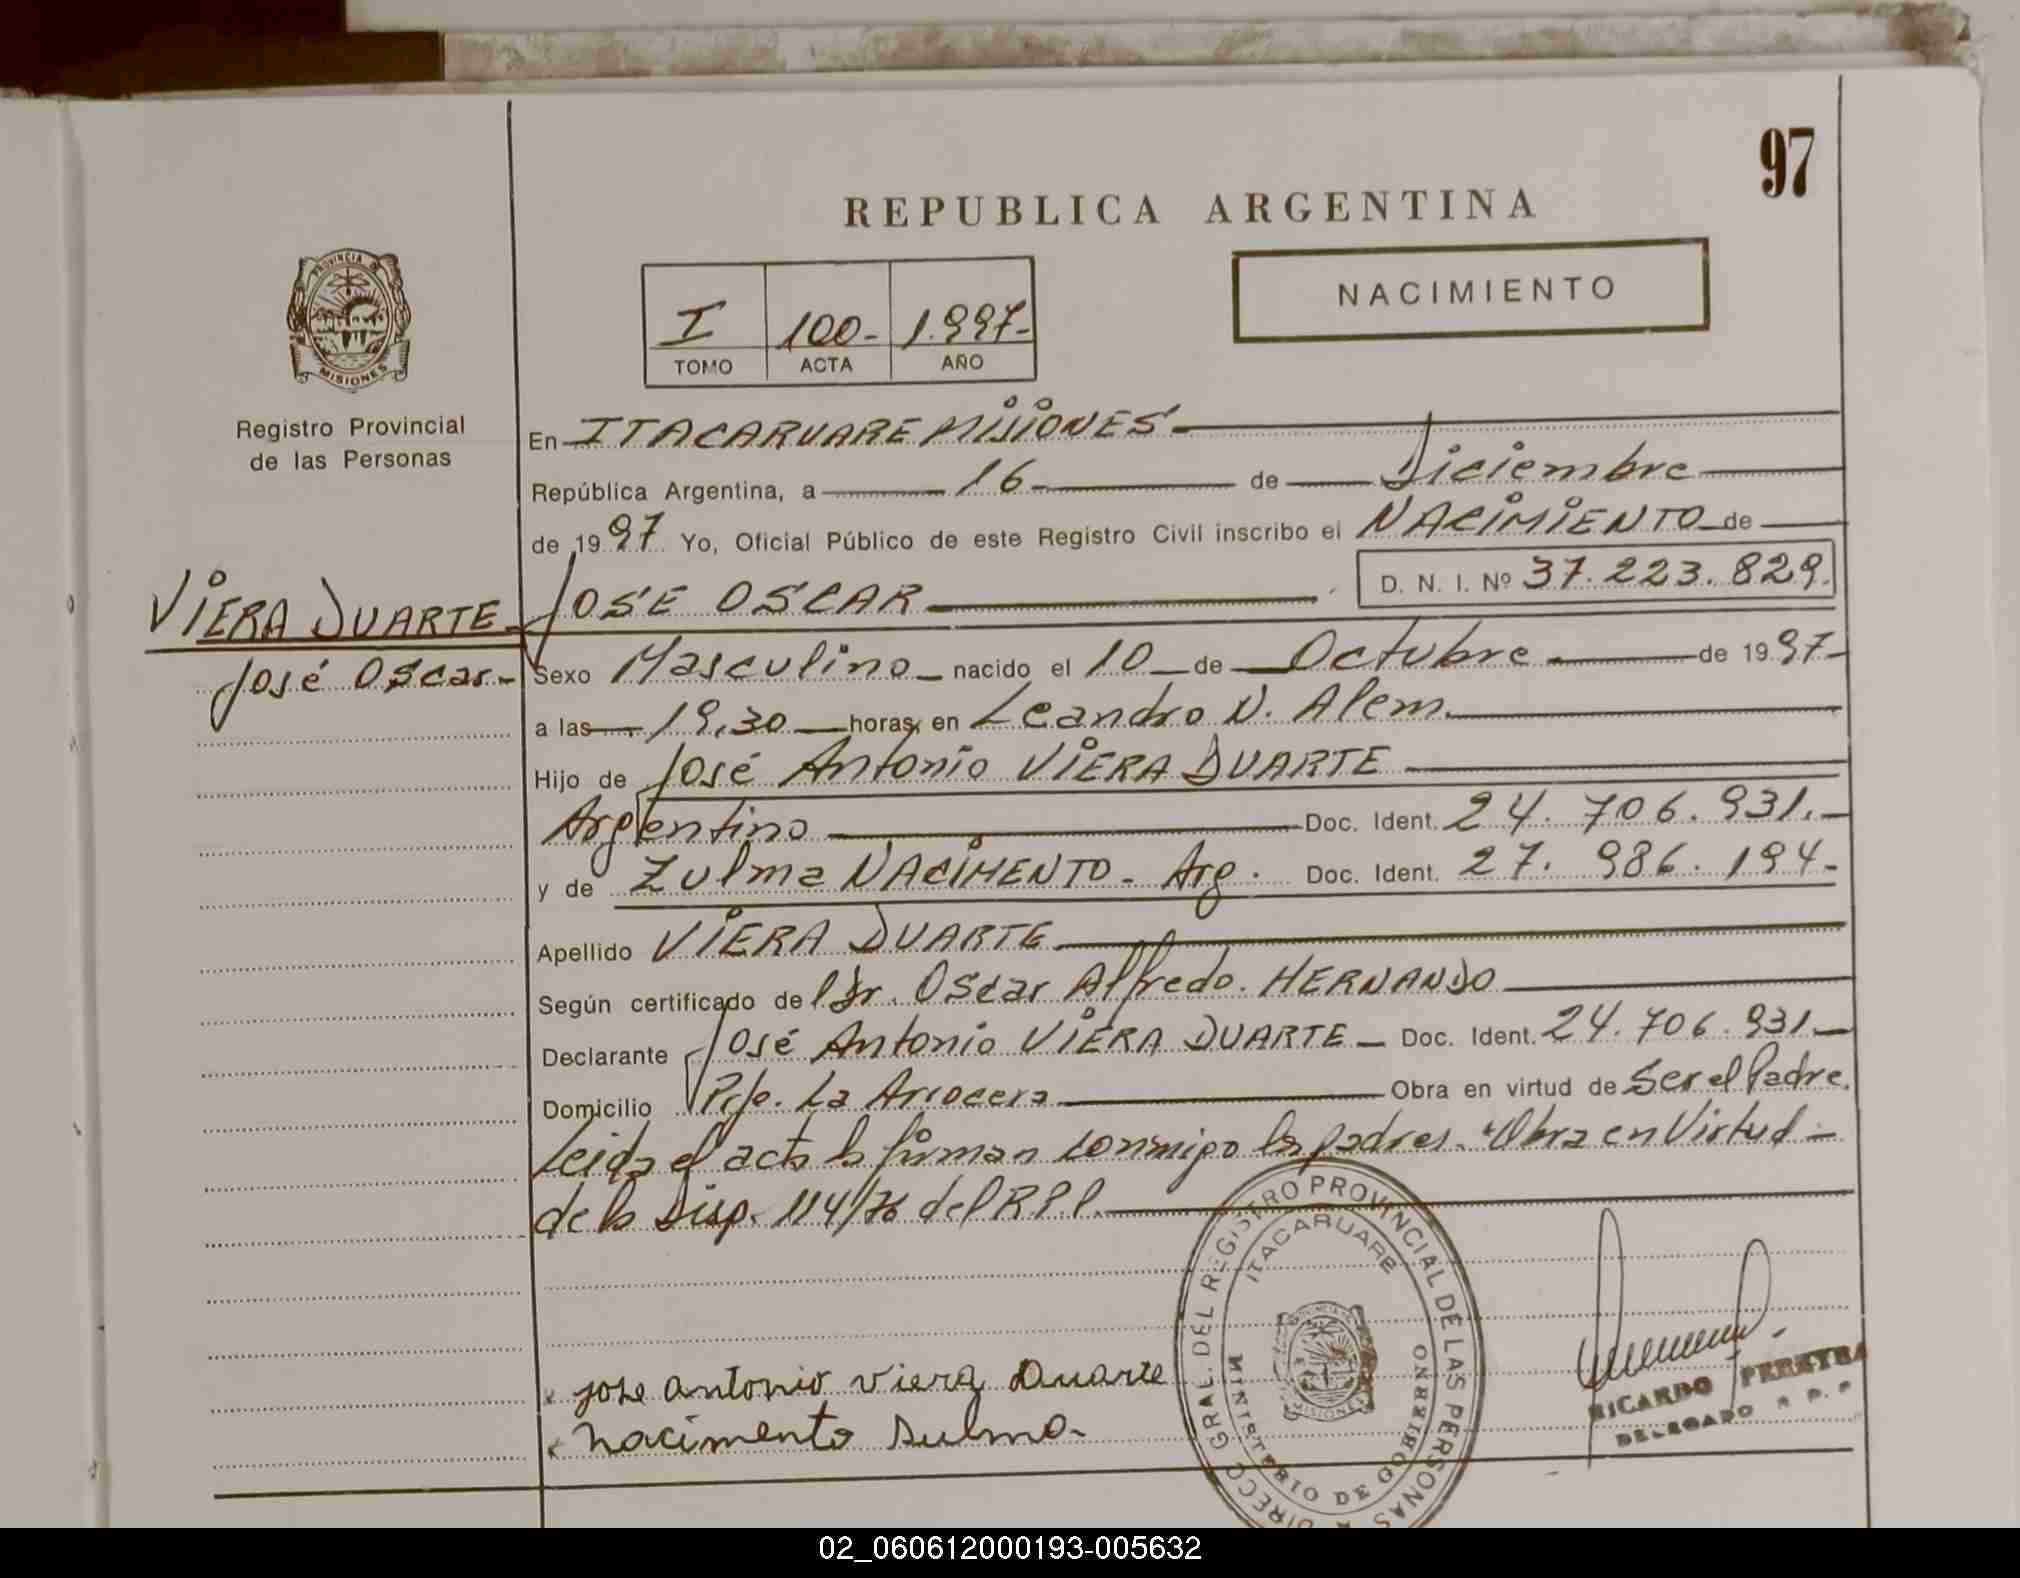 97
REPUBLICA ARGENTINA
NACIMIENTO
I 100- 1.997-
TOMO ACTA AÑO
PROVINCIA DE
MISIONES
Registro Provincial
de las Personas
En ITACARUARE MISIONES
República Argentina, a 16 de Diciembre
de 1997 Yo, Oficial Público de este Registro Civil inscribo el NACIMIENTO de
VIERA DUARTE JOSE OSCAR D. N. I. Nº 37.223.829.
José Oscar- Sexo Masculino nacido el 10 de Octubre de 1997-
a las 19,30 horas, en Leandro N. Alem.
Hijo de José Antonio VIERA DUARTE
Argentino Doc. Ident. 24.706.931.-
y de Zulma NACIMENTO- Arg. Doc. Ident. 27.986.194-
Apellido VIERA DUARTE
Según certificado de Dr. Oscar Alfredo. HERNANDO
Declarante José Antonio VIERA DUARTE - Doc. Ident. 24.706.931.-
Domicilio Pje. La Arrocera Obra en virtud de Ser el Padre.
Leida el acta la firman conmigo los padres. Obra en Virtud-
de la Disp. 114/76 del R.P.P.
jose antonio viera Duarte
nacimento sulma-
DIRECC. GRAL. DEL REGISTRO PROVINCIAL DE LAS PERSONAS
ITACARUARE
MINISTERIO DE GOBIERNO
MISIONES
RICARDO PEREYRA
DELEGADO R. P. P.
02_060612000193-005632